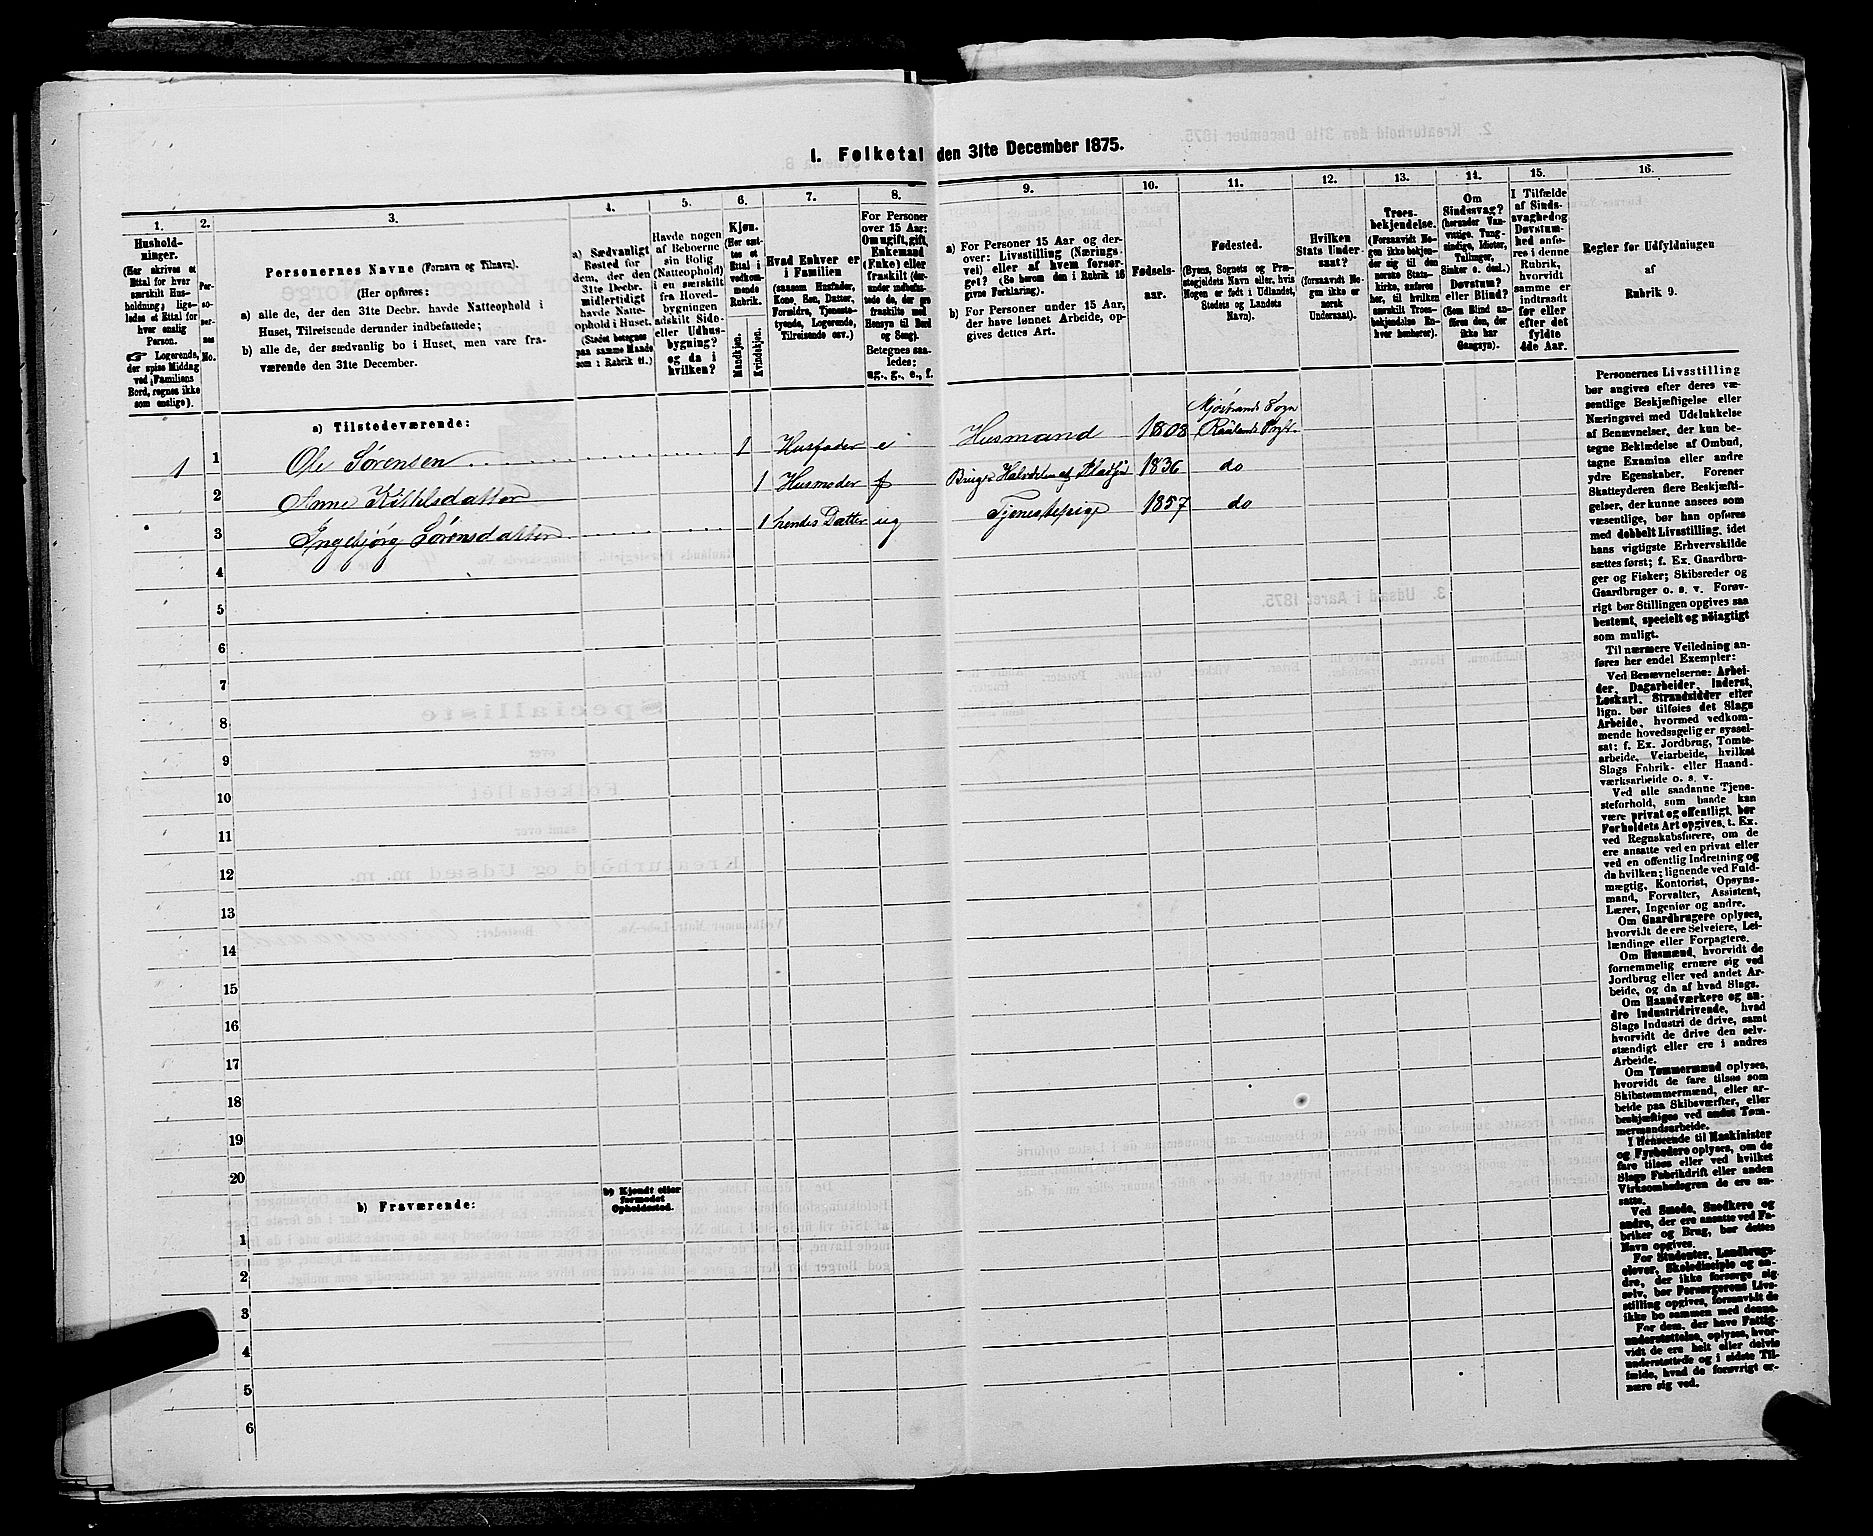 1. Folketal den 31te December 1875.
1.
2.
3.
4.
5.
6.
7.
8.
9.
10.
11.
12.
13.
14.
15.
16.
Hushold-
ninger.
(Her skrives et
Ettal for hver
særskilt Hus-
holdning; lige-
ledes et Ettal for
hver enslig
Person.
☞ Logerende,
der spise Middag
ved Familiens
Bord, regnes ikke
som enslige).
Per-
so-
ner-
nes
No.
Personernes Navne (Fornavn og Tilnavn).
(Her opføres:
a) alle de, der den 31te Decbr. havde Natteophold i
Huset, Tilreisende derunder indbefattede;
b) alle de, der sædvanlig bo i Huset, men vare fra-
værende den 31te December.
a) Sædvanligt
Bosted for
dem, der den
31te Decbr.
midlertidigt
havde Natte-
ophold i Huset.
(Stedet betegnes
paa samme Maade
som i Rubrik 11.)
Havde nogen
af Beboerne
sin Bolig
(Natteophold)
i en særskilt
fra Hoved-
bygningen
adskilt Side-
eller Udhus-
bygning?
og da i
hvilken?
Kjøn.
(Her sæt-
tes et
Ettal i
vedkom-
mende
Rubrik.
Mandkjøn.
Kvindekjøn.
Hvad Enhver er
i Familien
(saasom Husfader,
Kone, Søn, Datter,
Forældre, Tjeneste-
tyende, Logerende,
Tilreisende osv.)
For Personer
over 15 Aar:
Om ugift, gift,
Enkemand
(Enke) eller
fraskilt (der-
under indbefat-
tede de, der ere
fraskilte med
Hensyn til Bord
og Seng).
Betegnes saa-
ledes:
ug., g., e., f.
a) For Personer 15 Aar og der-
over: Livsstilling (Nærings-
vei) eller af hvem forsør-
get? (Se herom den i Rubrik 16
givne Forklaring).
b) For Personer under 15 Aar,
der have lønnet Arbeide, op-
gives dettes Art.
Fødsels-
aar.
Fødested.
(Byens, Sognets og Præ-
stegjeldets Navn eller, hvis
Nogen er født i Udlandet,
Stedets og Landets
Navn).
Hvilken
Stats Under-
saat?
(forsaavidt No-
gen ikke er
norsk
Undersaat).
Troes-
bekjendelse.
(Forsaavidt No-
gen ikke bekjen-
der sig til den
norske Stats-
kirke, anføres
her, til hvilken
særskilt Troes-
bekjendelse En-
hver henhører).
Om
Sindssvag?
(herunder Van-
vittige, Tung-
sindige, Idioter,
Tullinger,
Sinker o. desl.)
Døvstum?
eller Blind?
(Som Blind an-
føres den, der
ikke har
Gangsyn).
I Tilfælde
af Sinds-
svaghed og
Døvstum-
hed anfø-
res i denne
Rubrik,
hvorvidt
samme er
indtraadt
før eller
efter det
fyldte
4de Aar.
Regler for Udfyldningen
af
Rubrik 9.
a) Tilstedeværende:
1 1 Ole Sørensen 1 Husfader e Husmand 1808 Mjøstrands Sogn Raulands Prgj.
2 Anne Kittelsdatter 1 Husmoder f 1836 do
3 Ingebjørg Sørensdatter 1 hendes Datter ug Tjenestepige 1857 do
4
5
6
7
8
9
10
11
12
13
14
15
16
17
18
19
20
b) Fraværende:
b) Kjendt eller
formodet
Opholdssted.
1
2
3
4
5
6
Personernes Livsstilling
bør angives efter deres væ-
sentlige Beskjæftigelse eller
Næringsvei med Udelukkelse
af Benævnelser, der kun be-
tegne Beklædelse af Ombud,
tagne Examina eller andre
ydre Egenskaber. Forener
Skatteyderen flere Beskjæfti-
gelser, der kunne ansees som
væsentlige, bør han opføres
med dobbelt Livsstilling, idet
hans vigtigste Erhvervskilde
sættes først; f. Ex. Gaardbru-
ger og Fisker; Skibsreder og
Gaardbruger o. s. v. Forøv-
rigt bør Stillingen opgives saa
bestemt, specielt og nøiagtigt
som muligt.
Til nærmere Veiledning an-
føres her endel Exempler:
Ved Benævnelserne: Arbei-
der, Dagarbeider, Inderst,
Løskarl, Strandsidder eller
lign. bør tilføies det Slags
Arbeide, hvormed vedkom-
mende hovedsagelig er syssel-
sat; f. Ex. Jordbrug, Tomte-
arbeide, Veiarbeide, hvilket
Slags Fabrik- eller Haand-
værksarbeide o. s. v.
Ved alle saadanne Tjene-
steforhold, som baade kan
være privat og offentligt, bør
Forholdets Art opgives, t. Ex.
ved Regnskabsførere, om de
ere ansatte ved en privat eller
ved en offentlig Indretning og
da hvilken; lignende ved Fuld-
mægtig, Kontorist, Opsyns-
mand, Forvalter, Assistent,
Lærer, Ingeniør og andre.
Om Gaardbrugere oplyses,
hvorvidt de ere Selveiere, Lei-
lændinge eller Forpagtere.
Om Husmænd, hvorvidt de
fornemmelig ernære sig ved
Jordbrug eller ved andet Ar-
beide, og da af hvad Slags.
Om Haandværkere og an-
dre Industridrivende, hvad
Slags Industri de drive, samt
hvorvidt de drive den selv-
stændigt eller ere i andres
Arbeide.
Om Tømmermænd oplyses,
hvorvidt de fare tilsøs som
Skibstømmermænd, eller ar-
beide paa Skibsværfter, eller
beskjæftiges ved andet Tøm-
mermandsarbeide.
I Henseende til Maskinister
og Fyrbødere oplyses, om de
fare tilsøs eller ved hvilket
Slags Fabrikdrift eller anden
Virksomhed de ere an-
satte.
Ved Smede, Snedkere og
andre, der ere ansatte ved Fa-
briker og Brug, bør dettes
Navn opgives.
For Studenter, Landbrugs-
elever, Skoledisciple og an-
dre, der ikke forsørge sig
selv, bør Forsørgerens Livs-
stilling opgives, forsaavidt de
ikke bo sammen med denne.
For dem, der have Fattig-
understøttelse, oplyses, hvor-
vidt de ere helt eller delvis
understøttede og i sidste Til-
fælde, hvad de forøvrigt er-
nære sig ved.